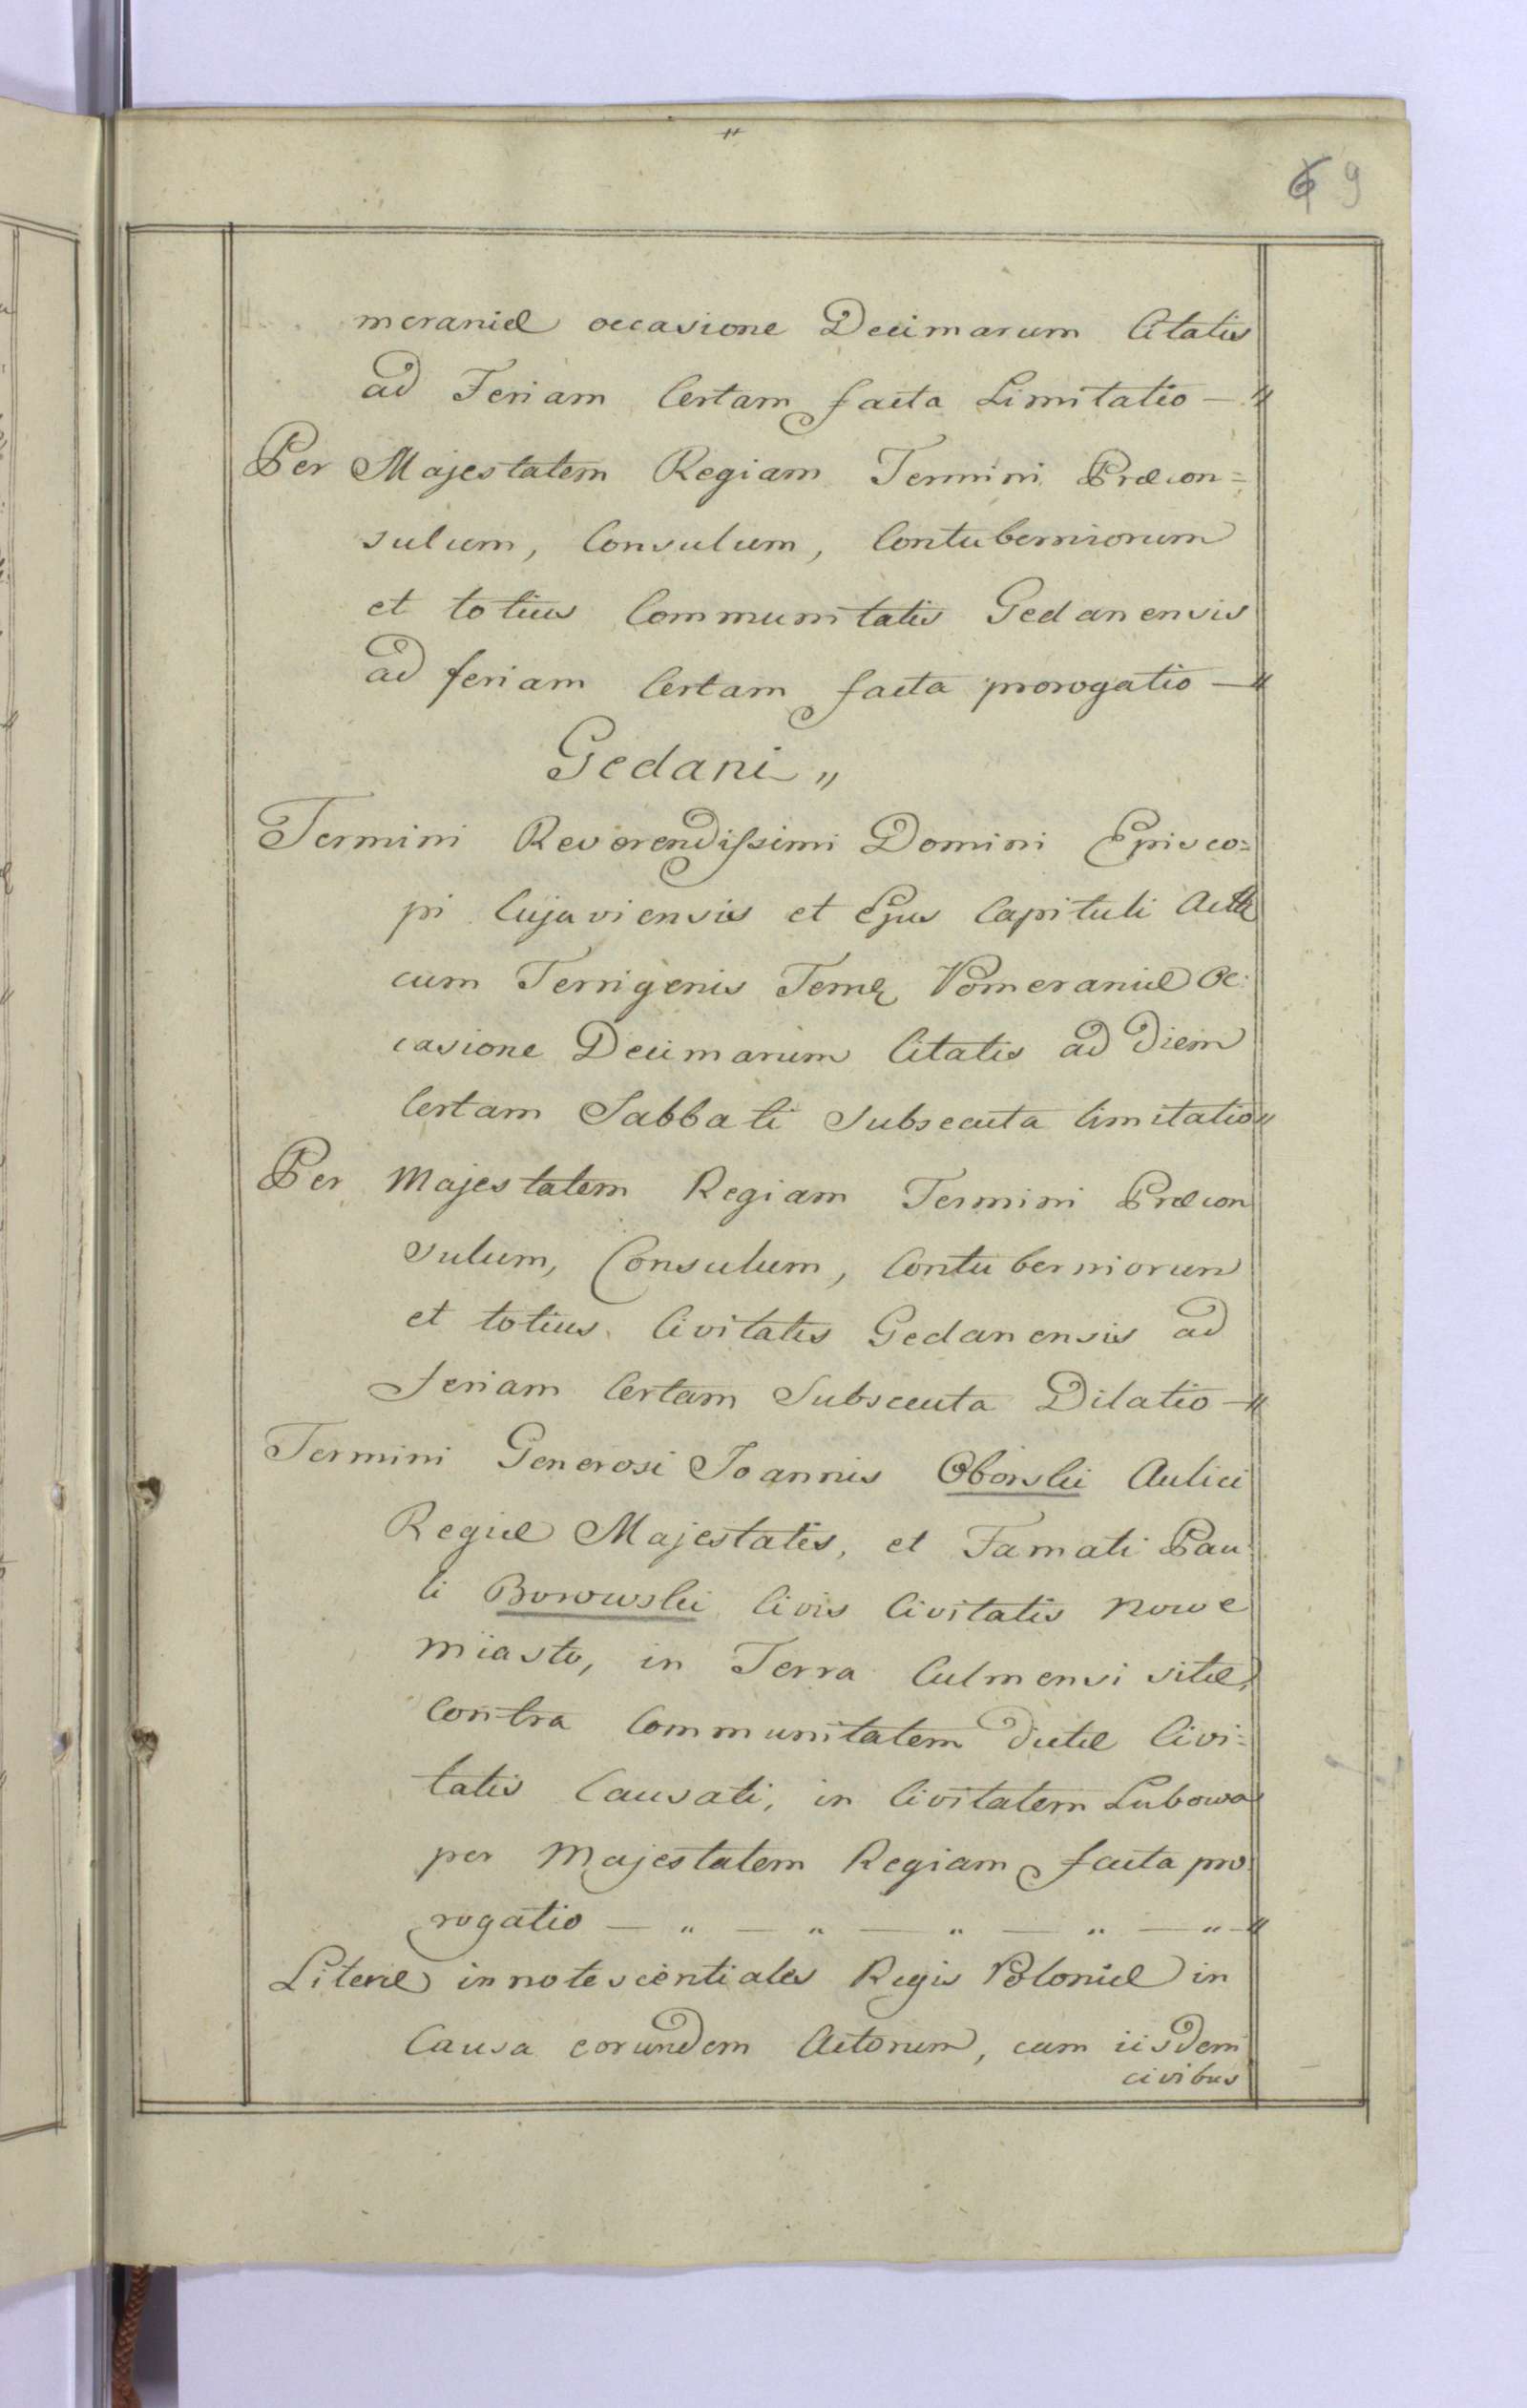 9
meraniæ occasione Decimarum Citatis
ad Feriam Certam facta Limitatio — "
Per Majestatem Regiam Termini Præcon=
sulum, Consulum, Contuberniorum
et totius Communitatis Gedanensis
ad feriam Certam facta prorogatio — "
Gedani "
Termini Reverendissimi Domini Episco=
pi Cujaviensis et Ejus Capituli
cum Terrigenis Terræ Pomeraniæ Oc:
casione Decimarum Citatis ad Diem
Certam Sabbati Subsecuta limitatio "
Per Majestatem Regiam Termini Præcon
sulum, Consulum, Contuberniorum
et totius Civitatis Gedanensis ad
Feriam Certam Subsecuta Dilatio — "
Termini Generosi Joannis Oborski Aulici
Regiæ Majestatis, et Famati Pau:
li Borowski Civis Civitatis Nowe
miasto, in Terra Culmensi sitæ,
Contra Communitatem dictæ Civi=
tatis Causati, in Civitatem Lubowa
per Majestatem Regiam facta pro:
rogatio — " — " — " — " — " — "
Literæ innotescentiales Regis Poloniæ in
Causa eorundem Actorum, cum iisdem
civibus